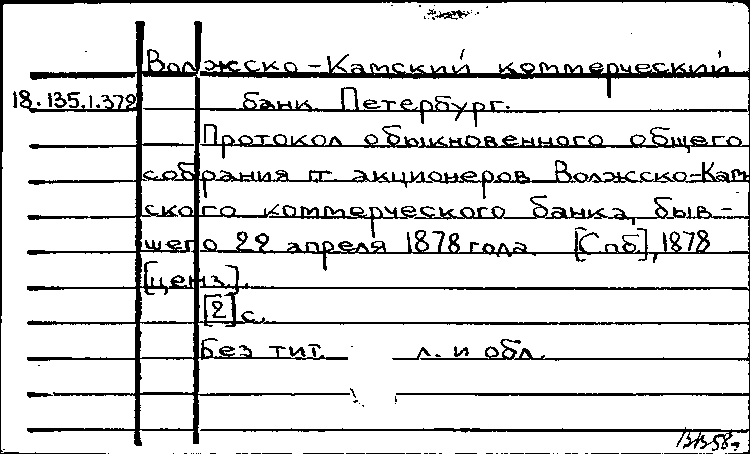 Волжско-Камский коммерческий
18.135.1.372 банк Петербург.
Протокол обыкновенного общего
собрания гг. акционеров Волжско-Кам
ского коммерческого банка, быв-
шего 22 апреля 1878 года [Спб], 1878
[ценз].
[2] с.
Без тит. л. и обл.